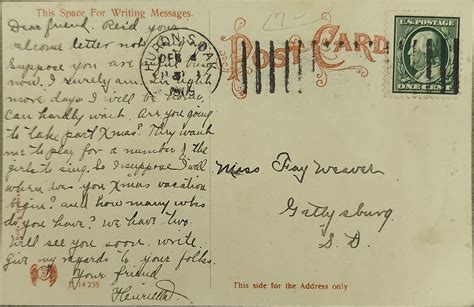 This Space For Writing Messages.
Dear friend. Rec'd your
welcome letter now
Suppose you are
now. I surely am. eight
more days I will be home
Can hardly wait. Are you going
to take part Xmas? They want
me to play for a number & the
girls to sing. So I suppose I will
when does your Xmas vacation
begin? and how many wks
do you have? we have two.
Will see you soon. write
give my regards to your folks.
Your friend
Henrietta
R-74235
POST CARD
DEC
U.S. POSTAGE
ONE CENT
Miss Fay Weaver
Gettysburg
S. D.
This side for the Address only